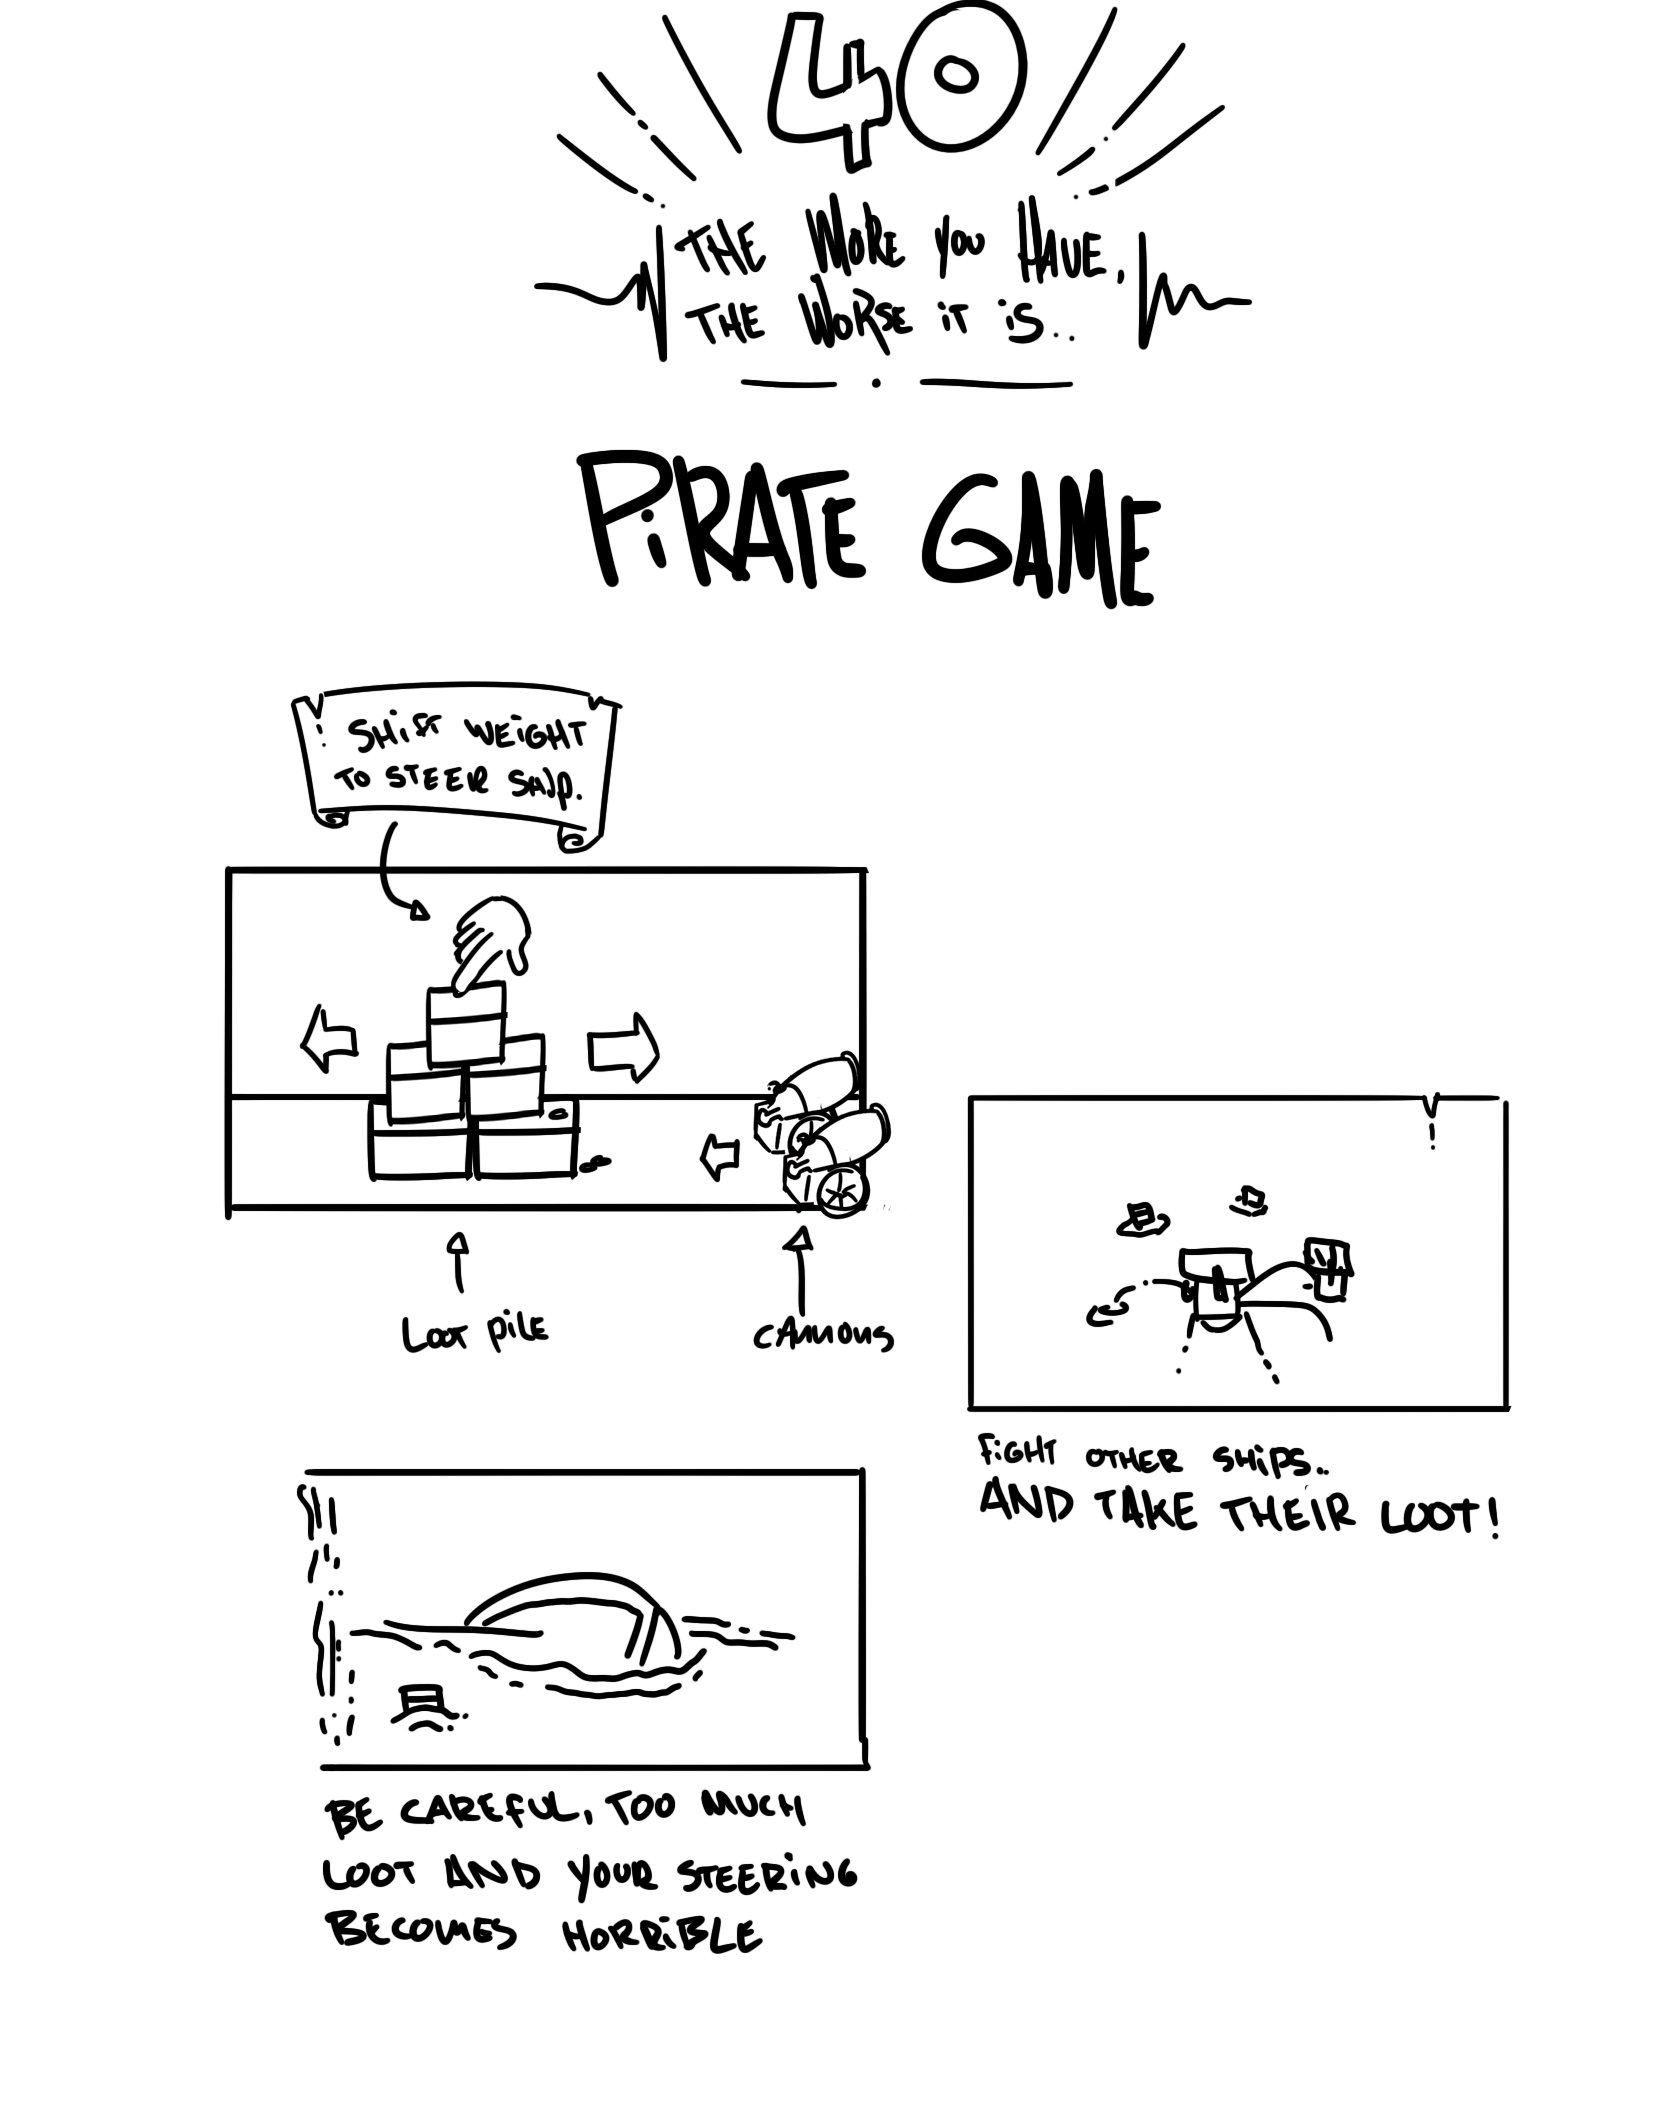 40
THE MORE YOU HAVE,
THE WORSE IT IS..
PiRATE GAME
SHiFT WEiGHT
TO STEER SHip.
LOOT PiLE
CANNONS
FiGHT OTHER SHiPS..
AND TAKE THEiR LOOT!
BE CAREFUL, TOO MUCH
LOOT AND YOUR STEERiNG
BECOMES HORRiBLE